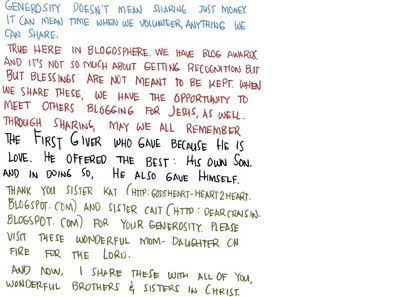 GENEROSITY DOESN'T MEAN SHARING JUST MONEY.
IT CAN MEAN TIME WHEN WE VOLUNTEER, ANYTHING WE
CAN SHARE.
TRUE HERE IN BLOGOSPHERE. WE HAVE BLOG AWARDS.
AND IT'S NOT SO MUCH ABOUT GETTING RECOGNITION BUT
BUT BLESSINGS ARE NOT MEANT TO BE KEPT. WHEN
WE SHARE THESE, WE HAVE THE OPPORTUNITY TO
MEET OTHERS BLOGGING FOR JESUS, AS WELL.
THROUGH SHARING, MAY WE ALL REMEMBER
THE FIRST GIVER WHO GAVE BECAUSE HE IS
LOVE. HE OFFERED THE BEST: HIS OWN SON.
AND IN DOING SO, HE ALSO GAVE HIMSELF.
THANK YOU SISTER KAT (HTTP:GODSHEART-HEART2HEART.
BLOGSPOT.COM) AND SISTER CAIT (HTTP:DEARCRAISIN.
BLOGSPOT.COM) FOR YOUR GENEROSITY. PLEASE
VISIT THESE WONDERFUL MOM-DAUGHTER ON
FIRE FOR THE LORD.
AND NOW, I SHARE THESE WITH ALL OF YOU,
WONDERFUL BROTHERS & SISTERS IN CHRIST.